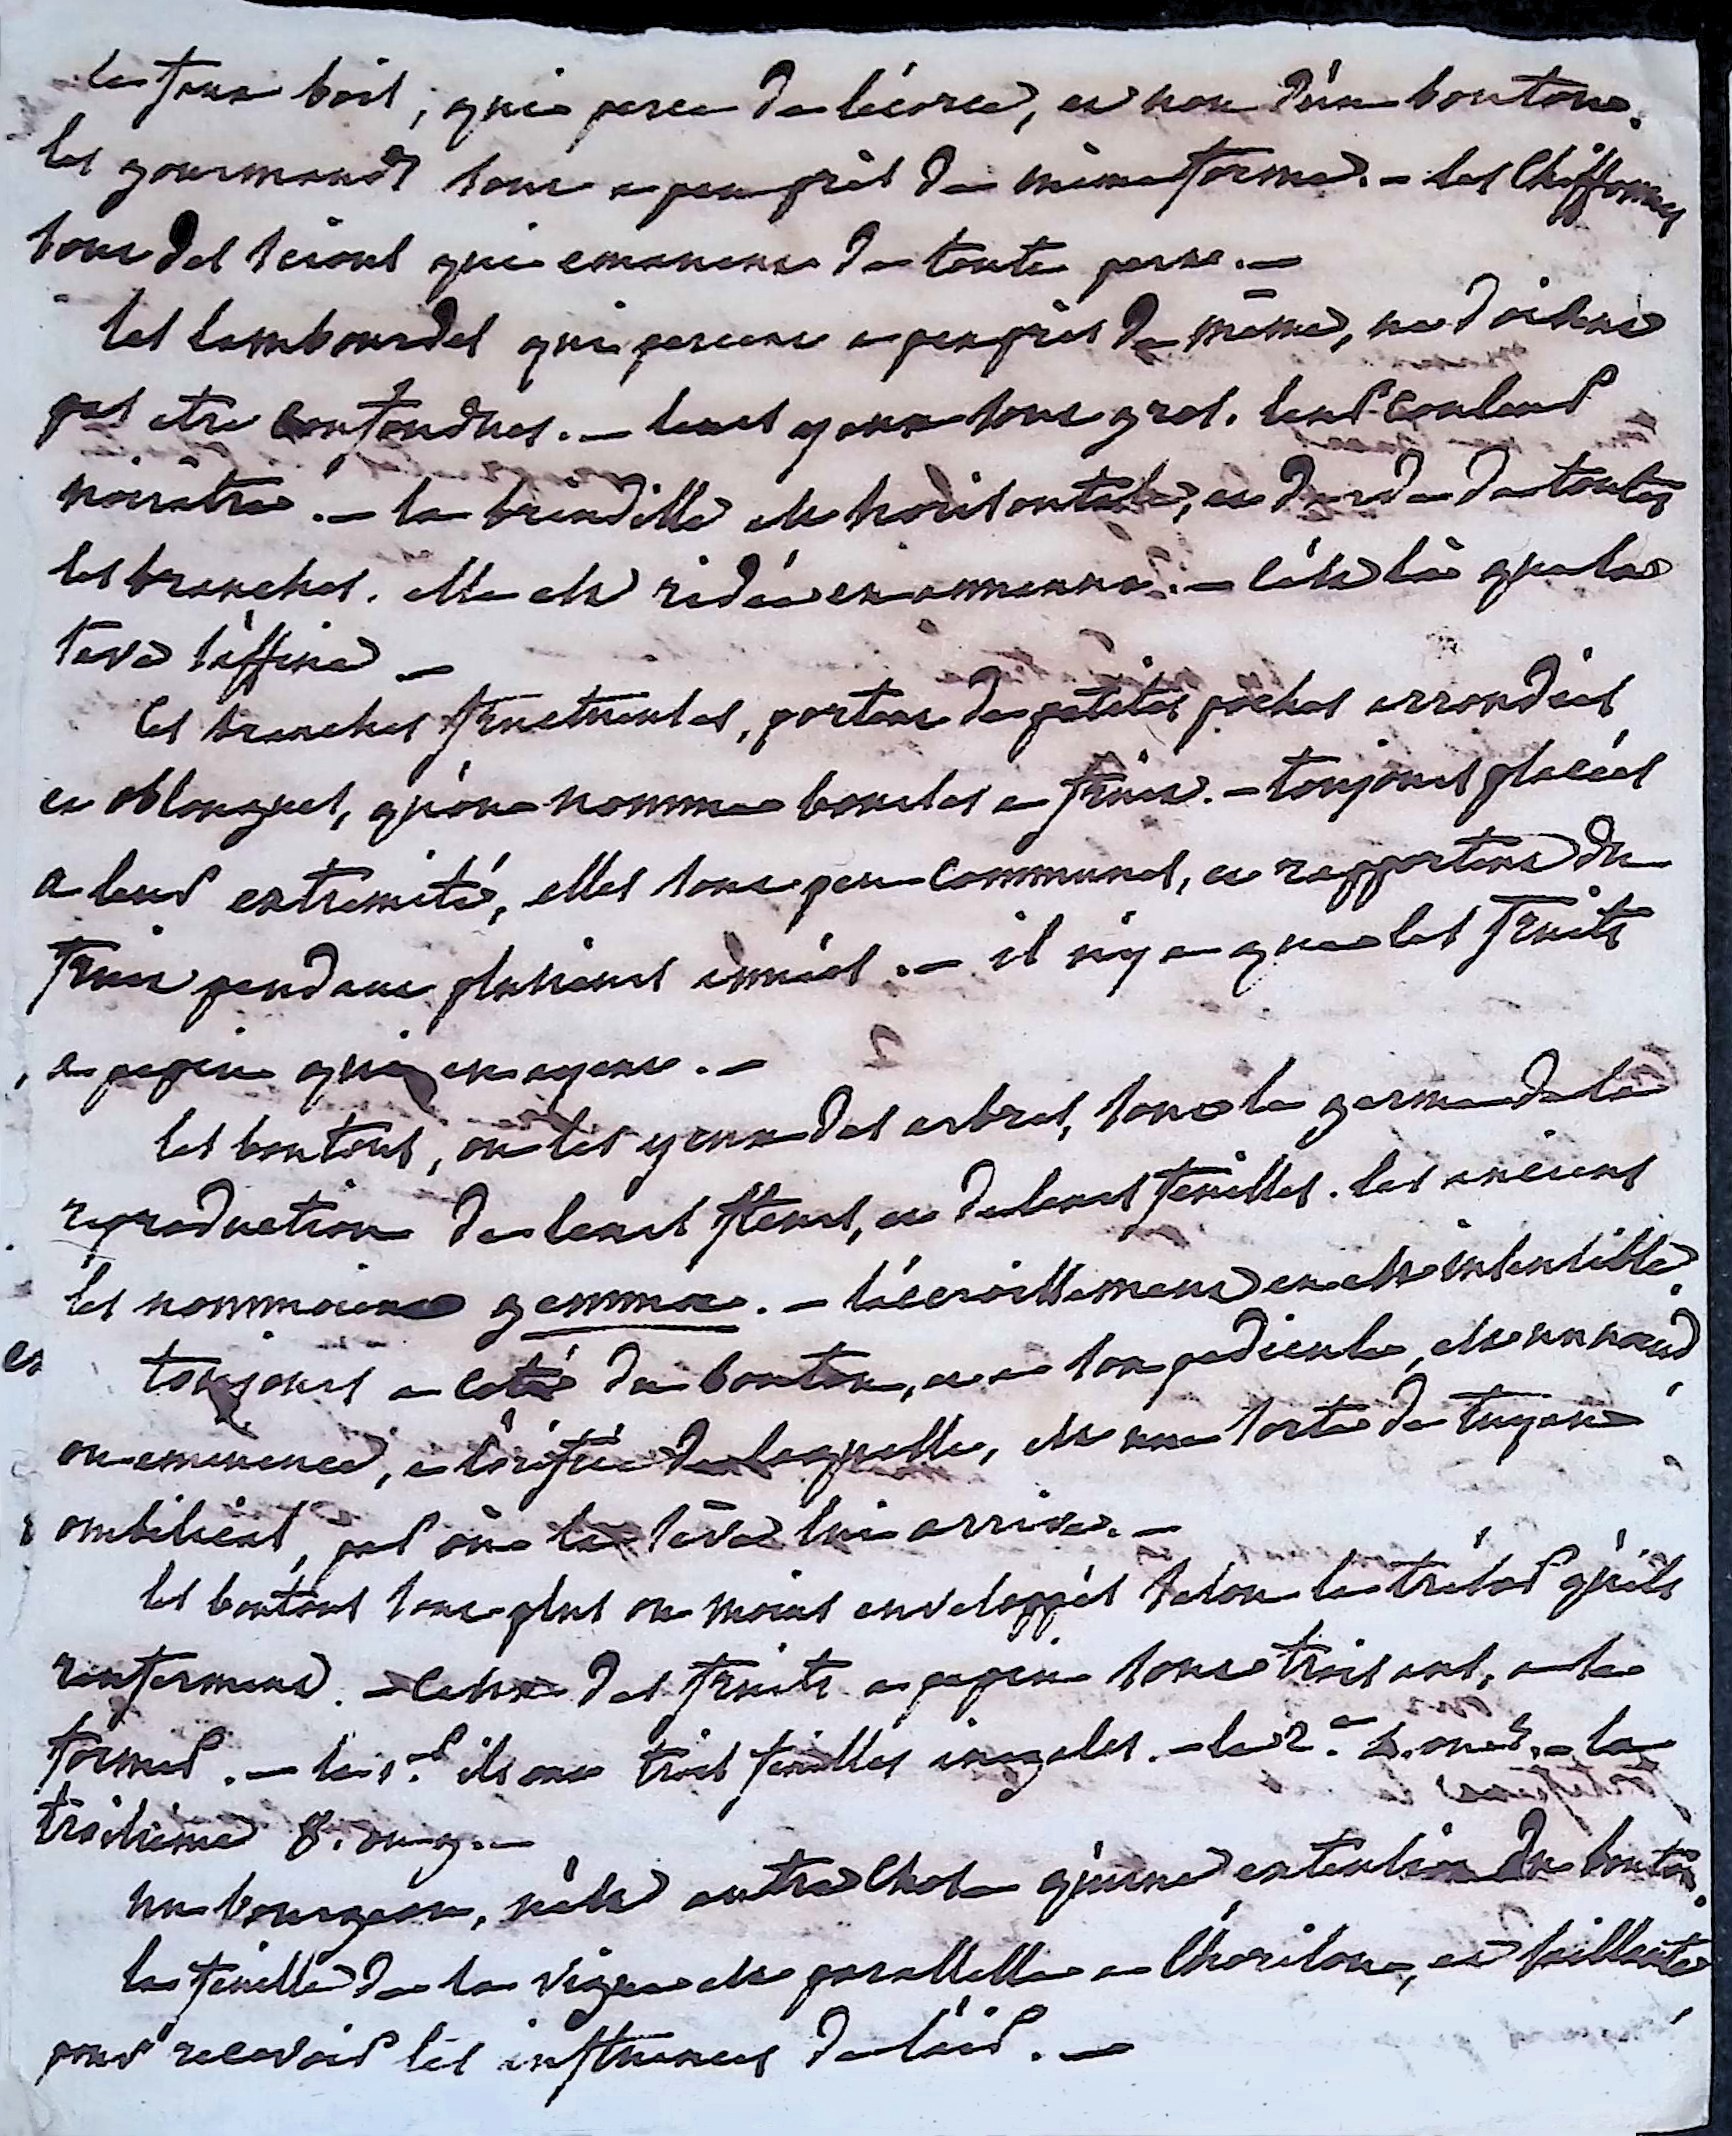 le faux bois, qui perce de l'écorce, et non d'un bouton.
les gourmands sont a peu près de même forme. – les Chiffonnes
sont des scions qui emanent de toute part. –
les lambourdes qui percent a peu près de même, ne doivent
pas etre confondues. – leurs yeux sont gros. leur couleur
noirâtre. – la brindille est horisontale, et darde de toutes
les branches. elle est ridée en anneaux. – c'est là que la
seve s'affine –
les branches fructueuses, portent de petites poches arrondies
et oblongues, qu'on nomme bourses a fruit. – toujours placées
a leur extremité, elles sont peu communes, et rapportent du
fruit pendant plusieurs années. – il n'y a que les fruits
a pepin qui en ayent. –
les boutons, ou les yeux des arbres, sont le germe de la
reproduction de leurs fleurs, et de leurs feuilles. les anciens
les nommoient gemmae. – l'accroissement en est insensible.
et toujours a coté du bouton, et a son pedicule, est un nœud
ou eminence, a l'orifice de laquelle, est une sorte de tuyau
ombilical, par où la séve lui arrive. –
les boutons sont plus ou moins enveloppés selon le trésor qu'ils
renferment. – Ceux des fruits a pepin sont trois ans, a se
former. – la 1.re ils ont trois feuilles inegales. – la 2.e 4. ou 5. – la
troisième 8. ou 9. –
un bourgeon, n'est autre chose qu'une extension du bouton.
la feuille de la vigne est parallelle a l'horison, et saillante
pour recevoir les influences de l'air. –